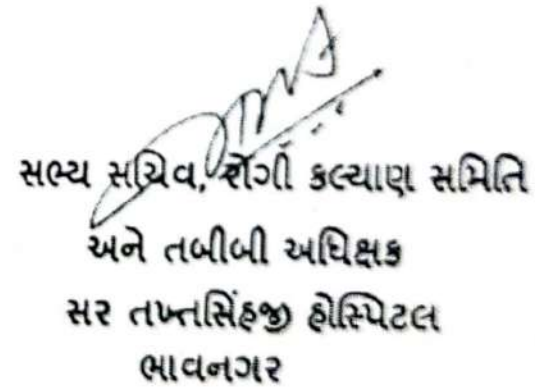 સભ્ય સચિવ, રોગી કલ્યાણ સમિતિ
અને તબીબી અધિક્ષક
સર તખ્તસિંહજી હોસ્પિટલ
ભાવનગર